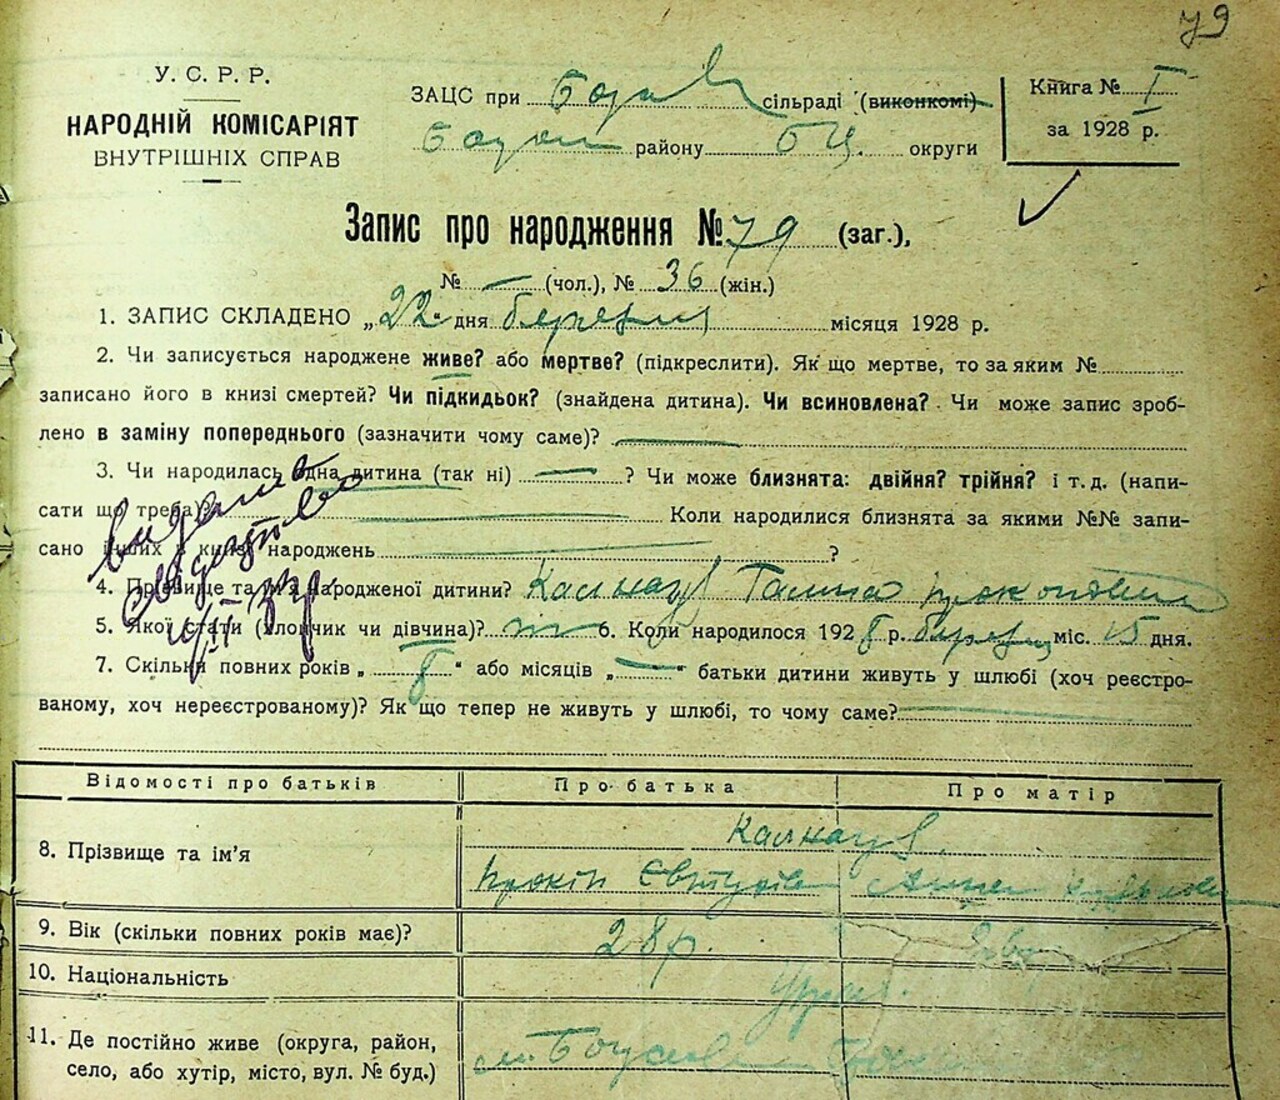 79
У. С. Р. Р.
НАРОДНІЙ КОМІСАРІЯТ
ВНУТРІШНІХ СПРАВ
ЗАЦС при сільраді (виконкомі)
району БЦ. округи
Книга № I
за 1928 р.
Запис про народження № 79 (заг.),
№ — (чол.), № 36 (жін.)
1. ЗАПИС СКЛАДЕНО „22" дня березня місяця 1928 р.
2. Чи записується народжене живе? або мертве? (підкреслити). Як що мертве, то за яким №
записано його в книзі смертей? Чи підкидьок? (знайдена дитина). Чи всиновлена? Чи може запис зроб-
лено в заміну попереднього (зазначити чому саме)? —
3. Чи народилась одна дитина (так ні) — ? Чи може близнята: двійня? трійня? і т. д. (напи-
сати що треба)? — Коли народилися близнята за якими №№ запи-
сано інших в книзі народжень — ?
4. Прізвище та ім'я народженої дитини? Галина
5. Якої статі (хлопчик чи дівчина)? 6. Коли народилося 1928 р. березня міс. 15 дня.
7. Скільки повних років „8" або місяців „—" батьки дитини живуть у шлюбі (хоч реєстро-
ваному, хоч нереєстрованому)? Як що тепер не живуть у шлюбі, то чому саме? —
Відомості про батьків Про батька Про матір
8. Прізвище та ім'я
Прокіп
9. Вік (скільки повних років має)? 28 р.
10. Національність
11. Де постійно живе (округа, район,
село, або хутір, місто, вул. № буд.)